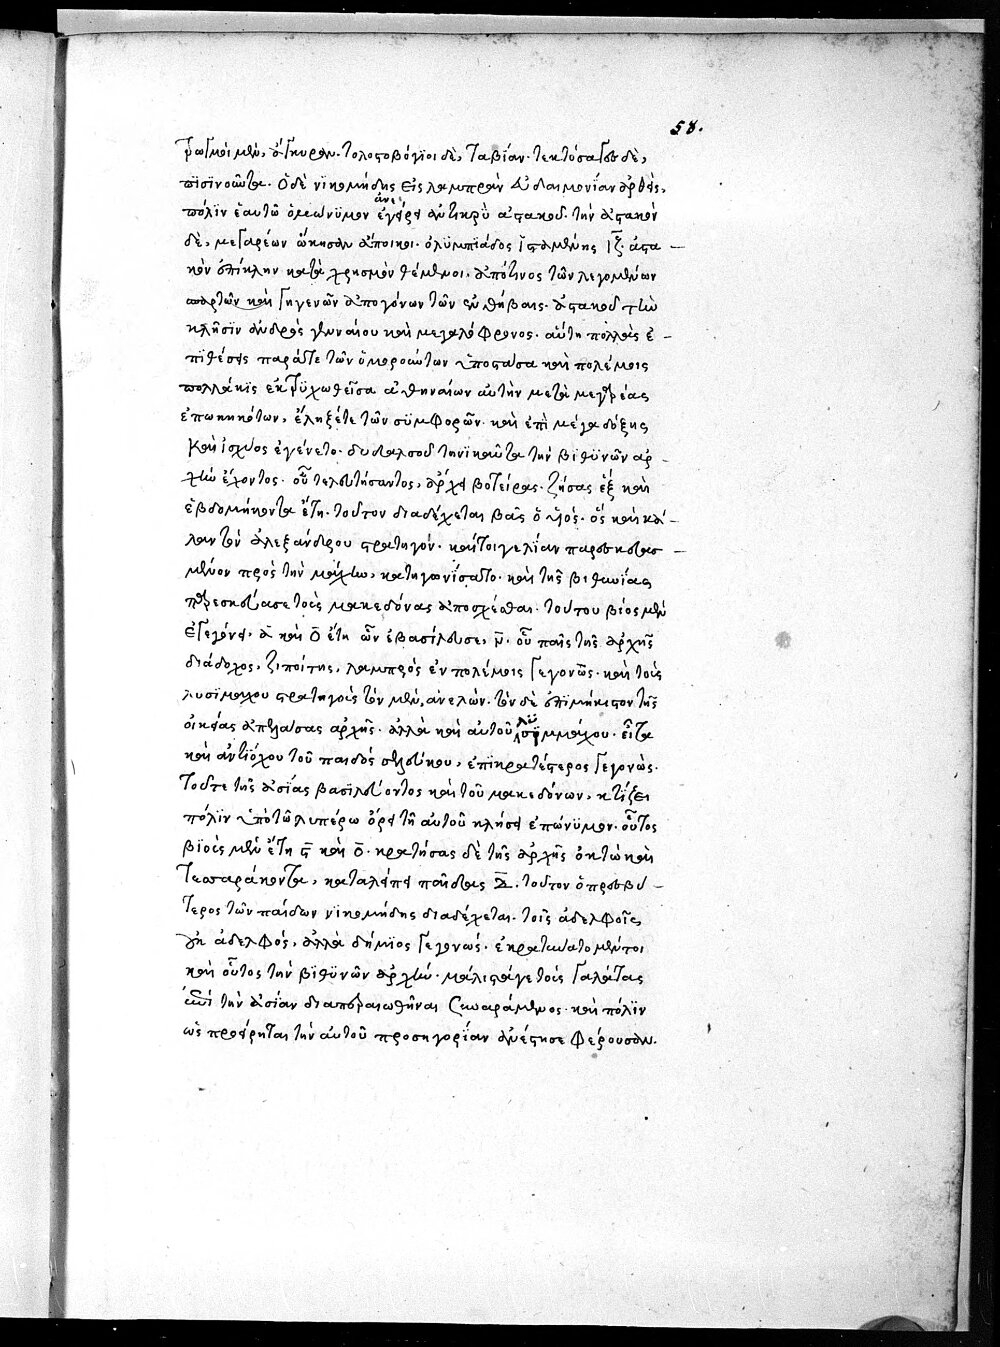 58.
τρωγμοὶ μὲν, ἄγκυραν. τολοστοβόγιοι δὲ, ταβίαν. τεκτόσαγες δὲ,
πισινοῦντα. Ὁ δὲ νικομήδης εἰς λαμπρὰν εὐδαιμονίαν ἀρθεὶς,
πόλιν ἑαυτῶ ὁμώνυμον ἀνεγείρει ἀντικρὺ ἀστακοῦ. τὴν ἀστακὸν
δὲ, μεγαρέων ὤκησαν ἄποικοι. ὀλυμπιάδος ἱσταμένης ιζ. ἀστα-
κὸν ἐπίκλην κατὰ χρησμὸν θέμενοι. ἀπό τινος τῶν λεγομένων
σπαρτῶν καὶ γηγενῶν ἀπογόνων τῶν ἐν θήβαις. ἀστακοῦ τὴν
κλῆσιν ἀνδρὸς γενναίου καὶ μεγαλόφρονος. αὕτη πολλὰς ἐ-
πιθέσεις παρά τε τῶν ὁμορούντων ὑποστᾶσα καὶ πολέμοις
πολλάκις ἐκτρυχωθεῖσα ἀθηναίων αὐτὴν μετὰ μεγαρέας
ἐπωκηκότων, ἔληξέ τε τῶν συμφορῶν. καὶ ἐπὶ μέγα δόξης
καὶ ἰσχύος ἐγένετο. δυδαλσοῦ τηνικαῦτα τὴν βιθυνῶν ἀρ-
χὴν ἔχοντος. οὗ τελευτήσαντος, ἄρχει βοτείρας. ζήσας ἓξ καὶ
ἑβδομήκοντα ἔτη. τοῦτον διαδέχεται βᾶς ὁ υἱός. ὃς καὶ κά-
λαν τὸν ἀλεξάνδρου στρατηγόν. καίτοι γε λίαν παρεσκευασ-
μένον πρὸς τὴν μάχην, κατηγωνίσατο. καὶ τῆς βιθυνίας
παρεσκεύασε τοὺς μακεδόνας ἀποσχέσθαι. τούτου βίος μὲν
ἐγεγόνει. α καὶ ο ἔτη ὧν ἐβασίλευσε, ν. οὗ παῖς τῆς ἀρχῆς
διάδοχος, ζιποίτης, λαμπρὸς ἐν πολέμοις γεγονὼς. καὶ τοὺς
λυσιμάχου στρατηγοὺς τὸν μὲν, ἀνελὼν. τὸν δὲ ἐπιμήκιστον τῆς
οἰκείας ἀπελάσας ἀρχῆς. ἀλλὰ καὶ αὐτοῦ λυσιμμάχου. εἶτα
καὶ ἀντιόχου τοῦ παιδὸς σελεύκου, ἐπικρατέστερος γεγονὼς.
τοῦτε τῆς ἀσίας βασιλεύοντος καὶ τοῦ μακεδόνων, κτίζει
πόλιν ὑπὸ τῶ λυπέρω ὄρει τῆ αὐτοῦ κλήσει ἐπώνυμον. οὗτος
βιοὺς μὲν ἔτη ϛ καὶ ο. κρατήσας δὲ τῆς ἀρχῆς ὀκτὼ καὶ
τεσσαράκοντα, καταλείπει παῖδας δ. τοῦτον ὁ πρεσβύ-
τερος τῶν παίδων νικομήδης διαδέχεται. τοῖς ἀδελφοῖς
οὐκ ἀδελφός, ἀλλὰ δήμιος γεγονώς. ἐκρατύνατο μέντοι
καὶ οὗτος τὴν βιθυνῶν ἀρχήν. μάλιστά γε τοὺς γαλάτας
ἐπὶ τὴν ἀσίαν διαπεραιωθῆναι συναράμενος. καὶ πόλιν
ὡς προείρηται τὴν αὐτοῦ προσηγορίαν ἀνέστησε φέρουσαν.